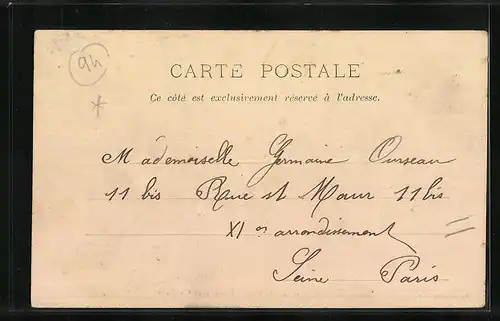 94
*
CARTE POSTALE
Ce côté est exclusivement réservé à l'adresse.
Mademoiselle Germaine Ourseau
11 bis Rue st Maur 11 bis
XI es arrondissement
Seine Paris